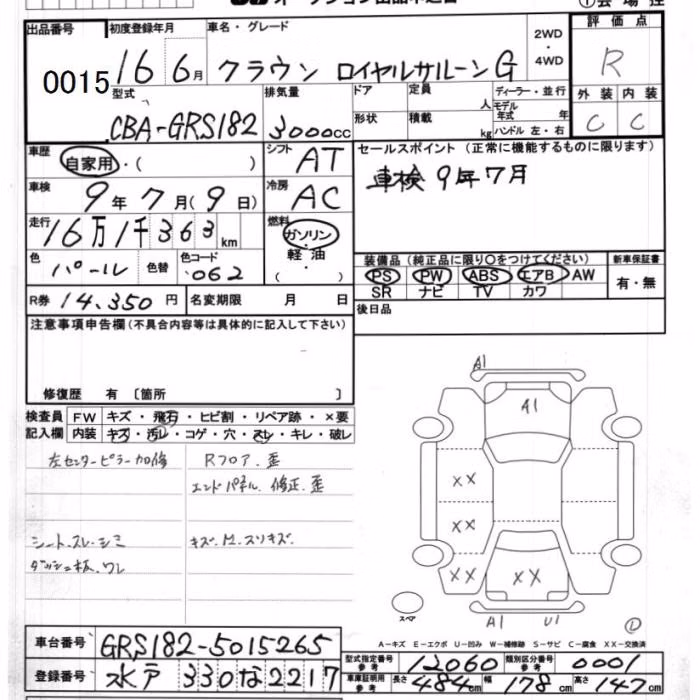 オークション出品申込書
①会場控
出品番号
0015
初度登録年月
16 6月
車名・グレード
クラウン ロイヤルサルーンG
2WD
・
4WD
評価点
R
外装 内装
C C
型式
CBA-GRS182
排気量
3000cc
ドア
形状
定員
人
積載
kg
ディーラー・並行
モデル
年式 年
ハンドル 左・右
車歴
自家用・( )
シフト
AT
車検
9年7月(9日)
冷房
AC
走行
16万1千363km
燃料
ガソリン
・
軽油
( )
色
パール
色替
色コード
062
R券 14,350円
名変期限 月 日
セールスポイント (正常に機能するものに限ります)
車検9年7月
装備品 (純正品に限り○をつけてください)
PS PW ABS エアB AW
SR ナビ TV カワ
新車保証書
有・無
後日品
注意事項申告欄(不具合内容等は具体的に記入して下さい)
修復歴 有 〔箇所 〕
検査員
記入欄
FW キズ・飛石・ヒビ割・リペア跡・×要
内装 キズ・汚レ・コゲ・穴・スレ・キレ・破レ
左センターピラー加修
Rフロア.歪
エンドパネル.修正.歪
シート.スレ.シミ
キズ.M.スリキズ.
ダッシュ板.ワレ
A1
A1
XX
XX
XX
XX
スペア
A1
U1
A-キズ E-エクボ U-凹み W-補修跡 S-サビ C-腐食 XX-交換済
車台番号
GRS182-5015265
登録番号
水戸 330 な 2217
型式指定番号
参考
12060
類別区分番号
参考
0001
車庫証明用
参考
長さ 484cm 幅 178cm 高さ 147cm